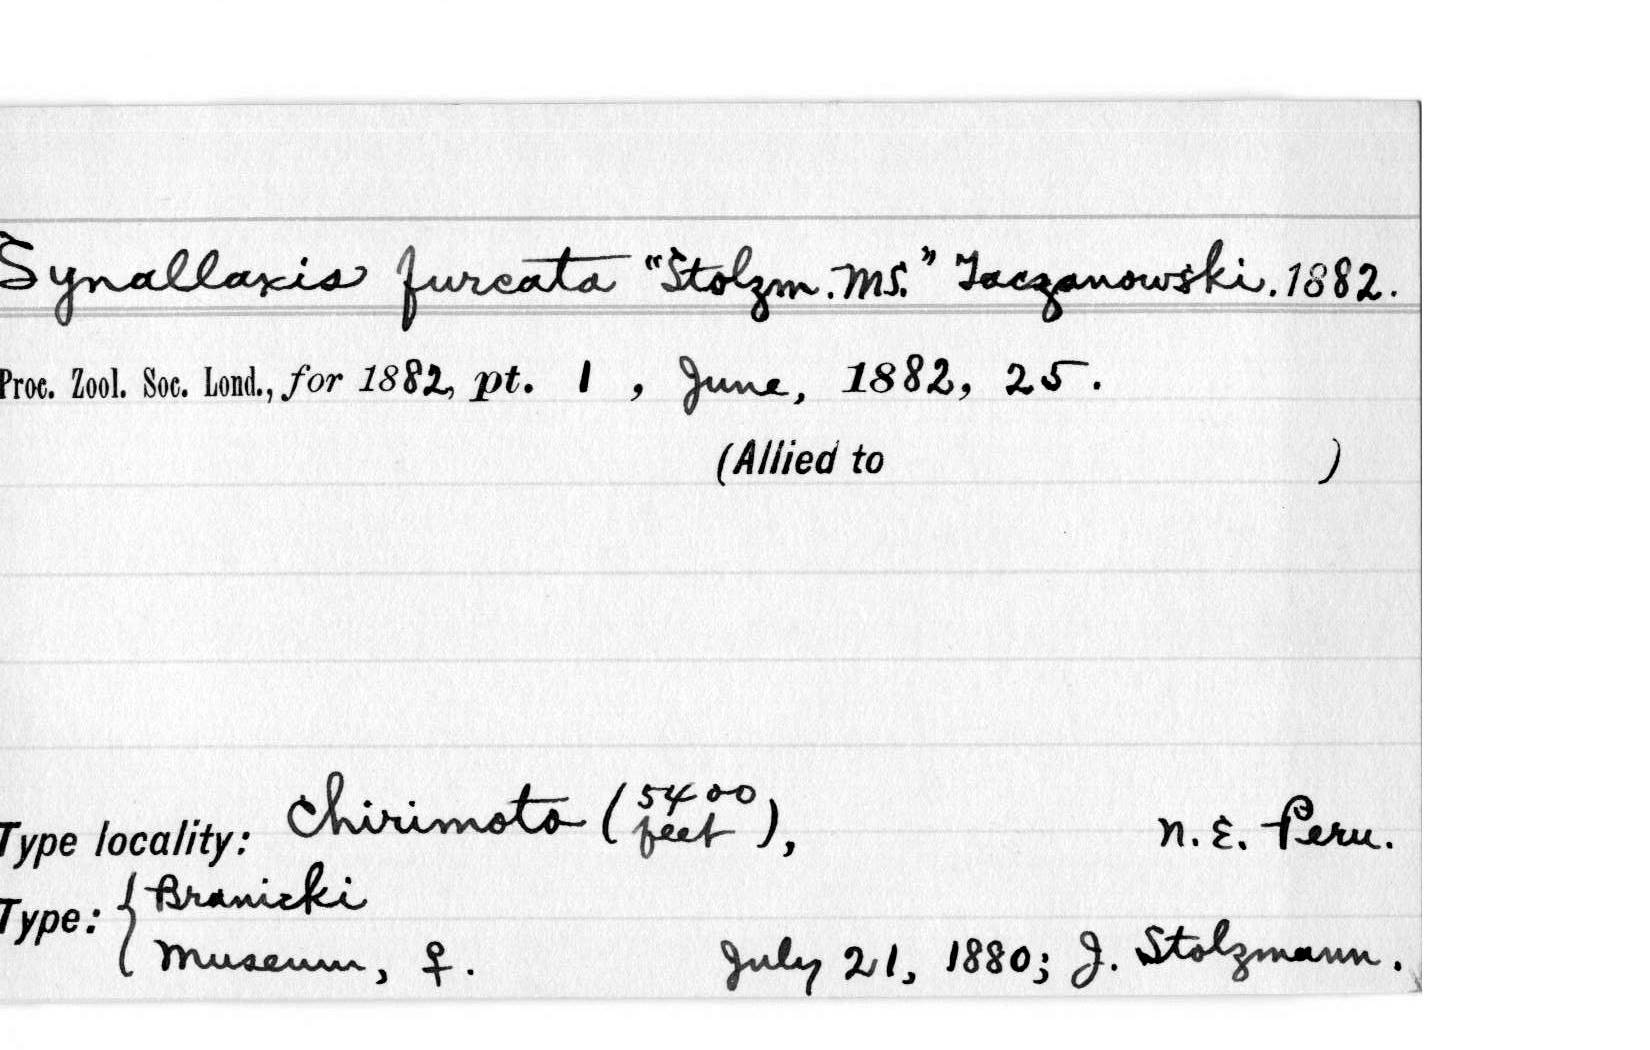 Synallaxis furcata "Stolzm. MS." Taczanowski. 1882.
Proc. Zool. Soc. Lond., for 1882, pt. 1, June, 1882, 25.
(Allied to )
Type locality: Chirimoto (5400 feet), N. E. Peru.
Type: { Branicki
Museum, ♀. July 21, 1880; J. Stolzmann.